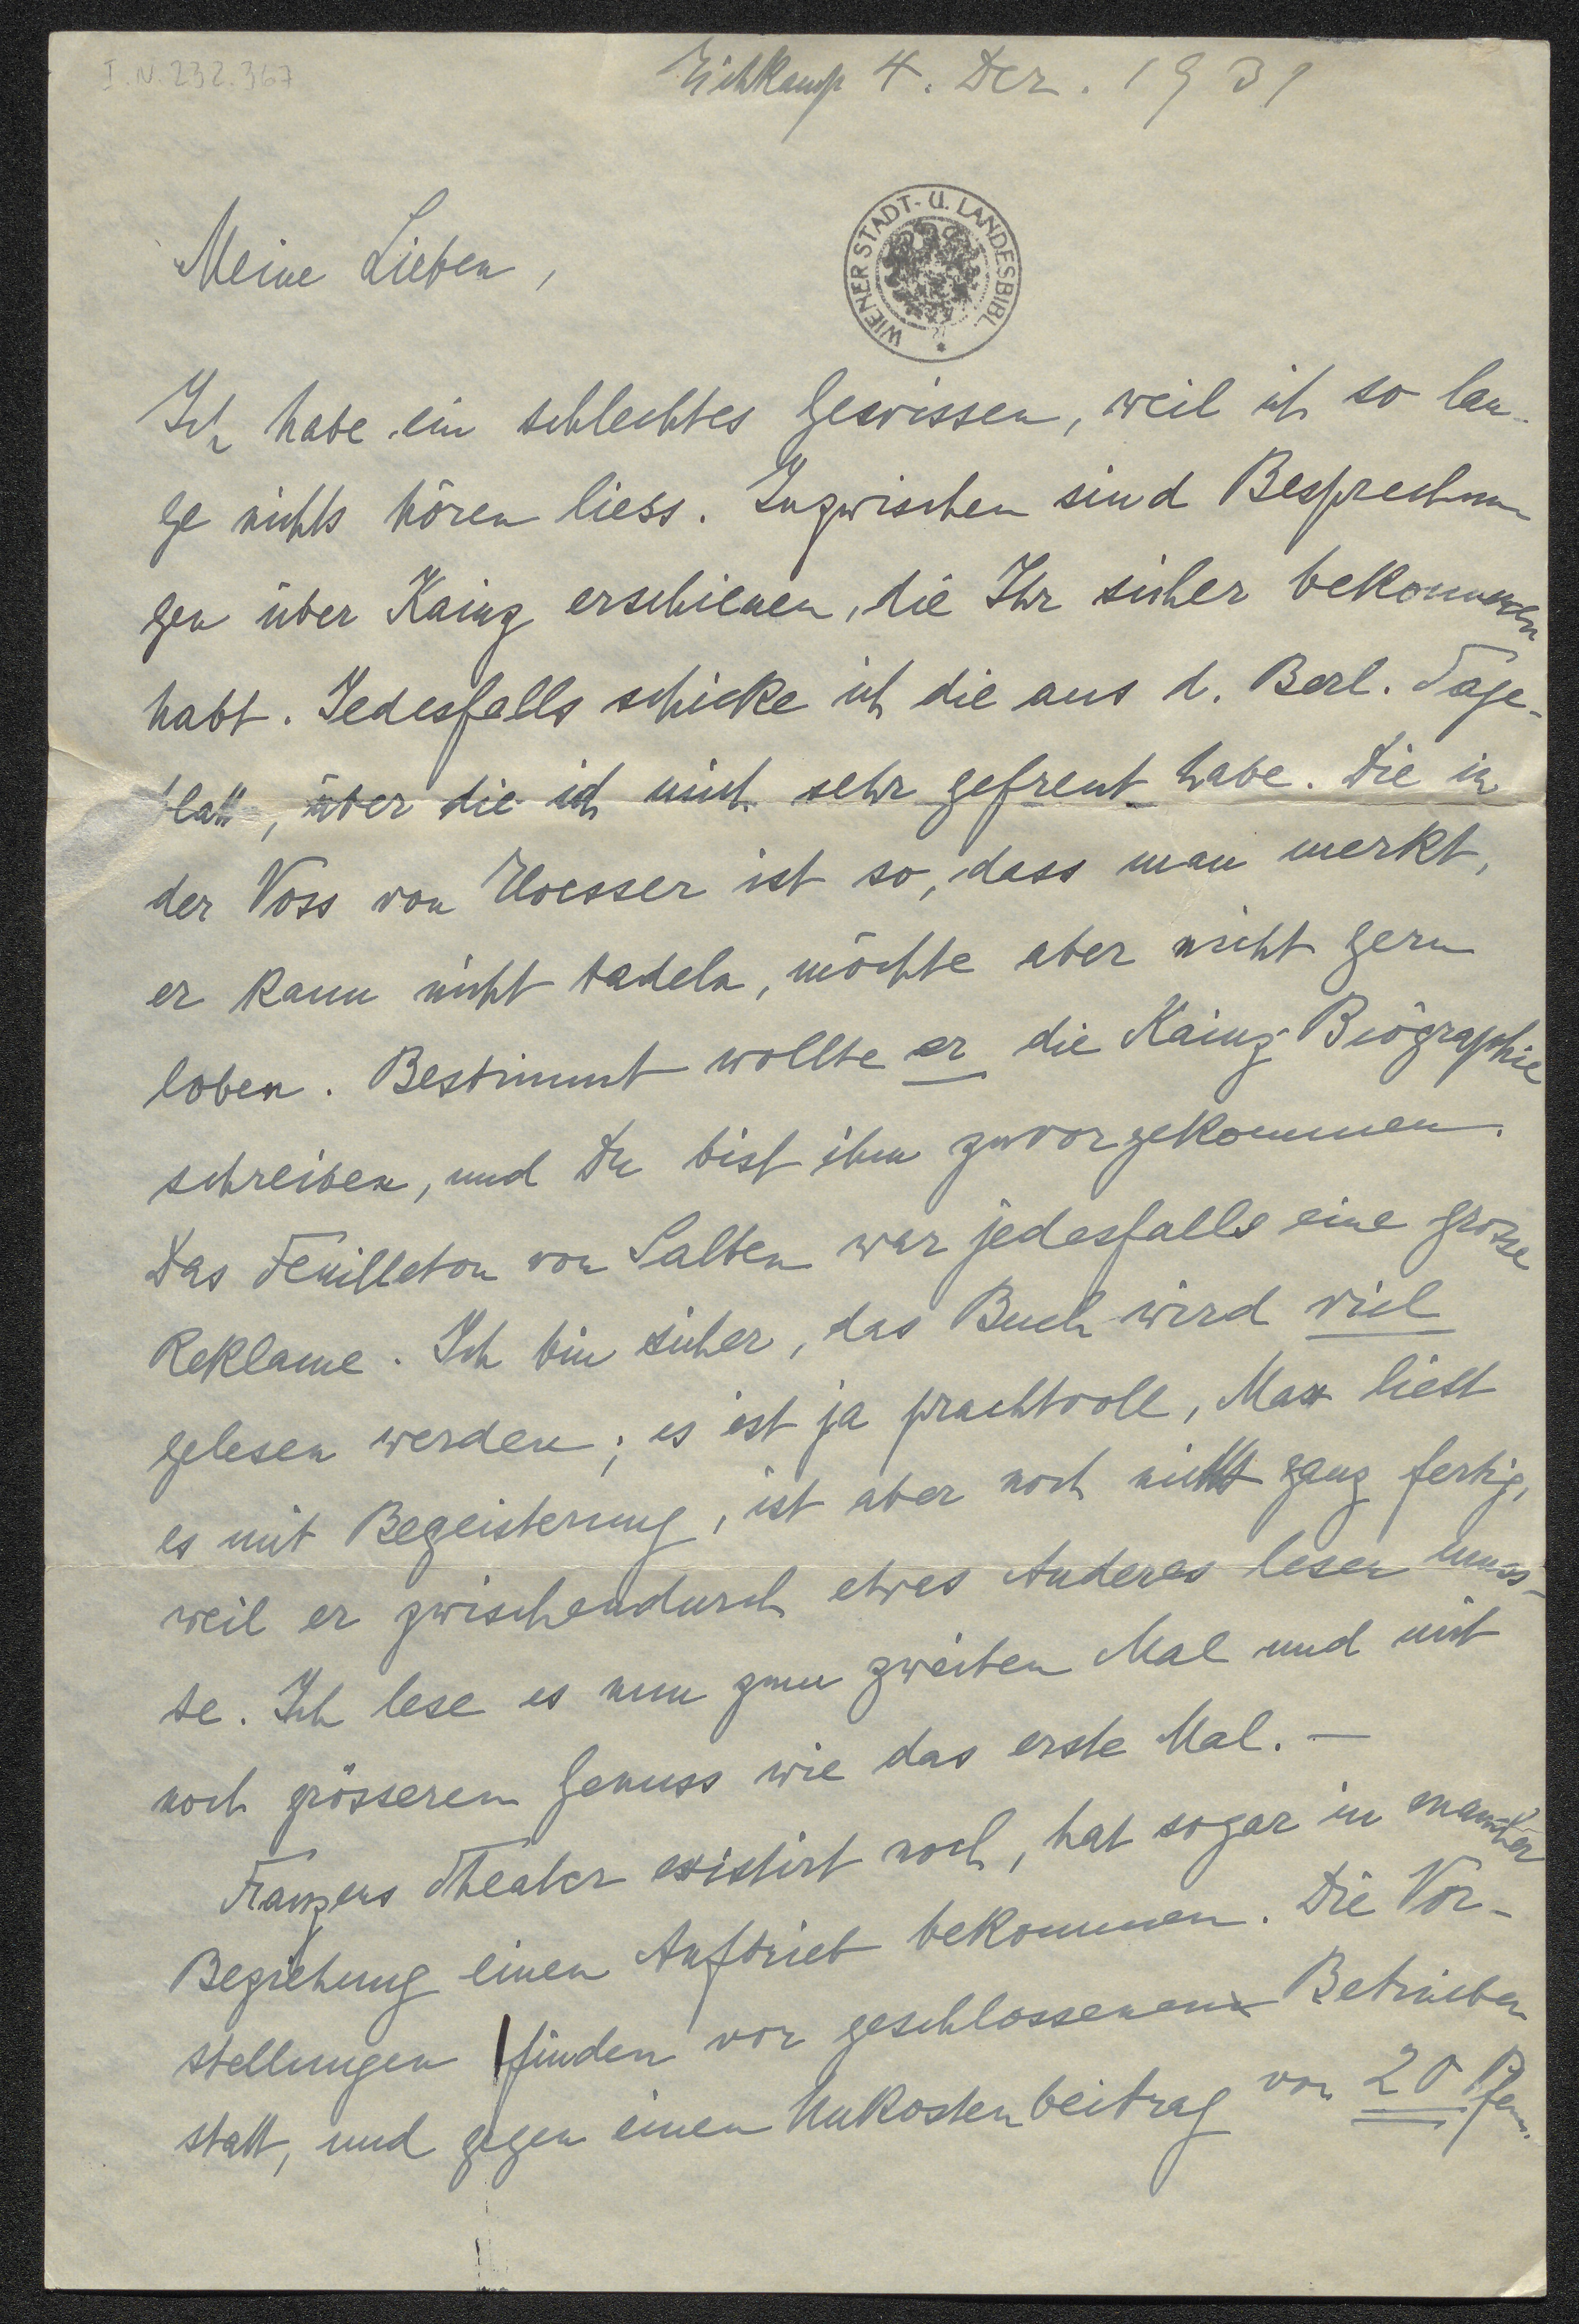 I.N. 232.367
Eichkamp 4. Dez. 1931
WIENER STADT- U. LANDESBIBL.
Meine Lieben,
Ich habe ein schlechtes Gewissen, weil ich so lan-
ge nichts hören liess. Inzwischen sind Besprechun
gen über Kainz erschienen, die Ihr sicher bekommen
habt. Jedesfalls schicke ich die aus d. Berl. Tage-
blatt, über die ich mich sehr gefreut habe. Die in
der Voss von Eloesser ist so, dass man merkt,
er kann nicht tadeln, möchte aber nicht gern
loben. Bestimmt wollte er die Kainz-Biographie
schreiben, und Du bist ihm zuvorgekommen.
Das Feuilleton von Salten war jedesfalls eine grosse
Reklame. Ich bin sicher, das Buch wird viel
gelesen werden; es ist ja prachtvoll, Max liest
es mit Begeisterung, ist aber noch nicht ganz fertig,
weil er zwischendurch etwas Anderes lesen muss-
te. Ich lese es nun zum zweiten Mal und mit
noch grösserem Genuss wie das erste Mal. —
Franzens Theater existirt noch, hat sogar in mancher
Beziehung einen Auftrieb bekommen. Die Vor-
stellungen finden vor geschlossenen Betrieben
statt, und gegen einen Unkostenbeitrag von 20 Pfen.